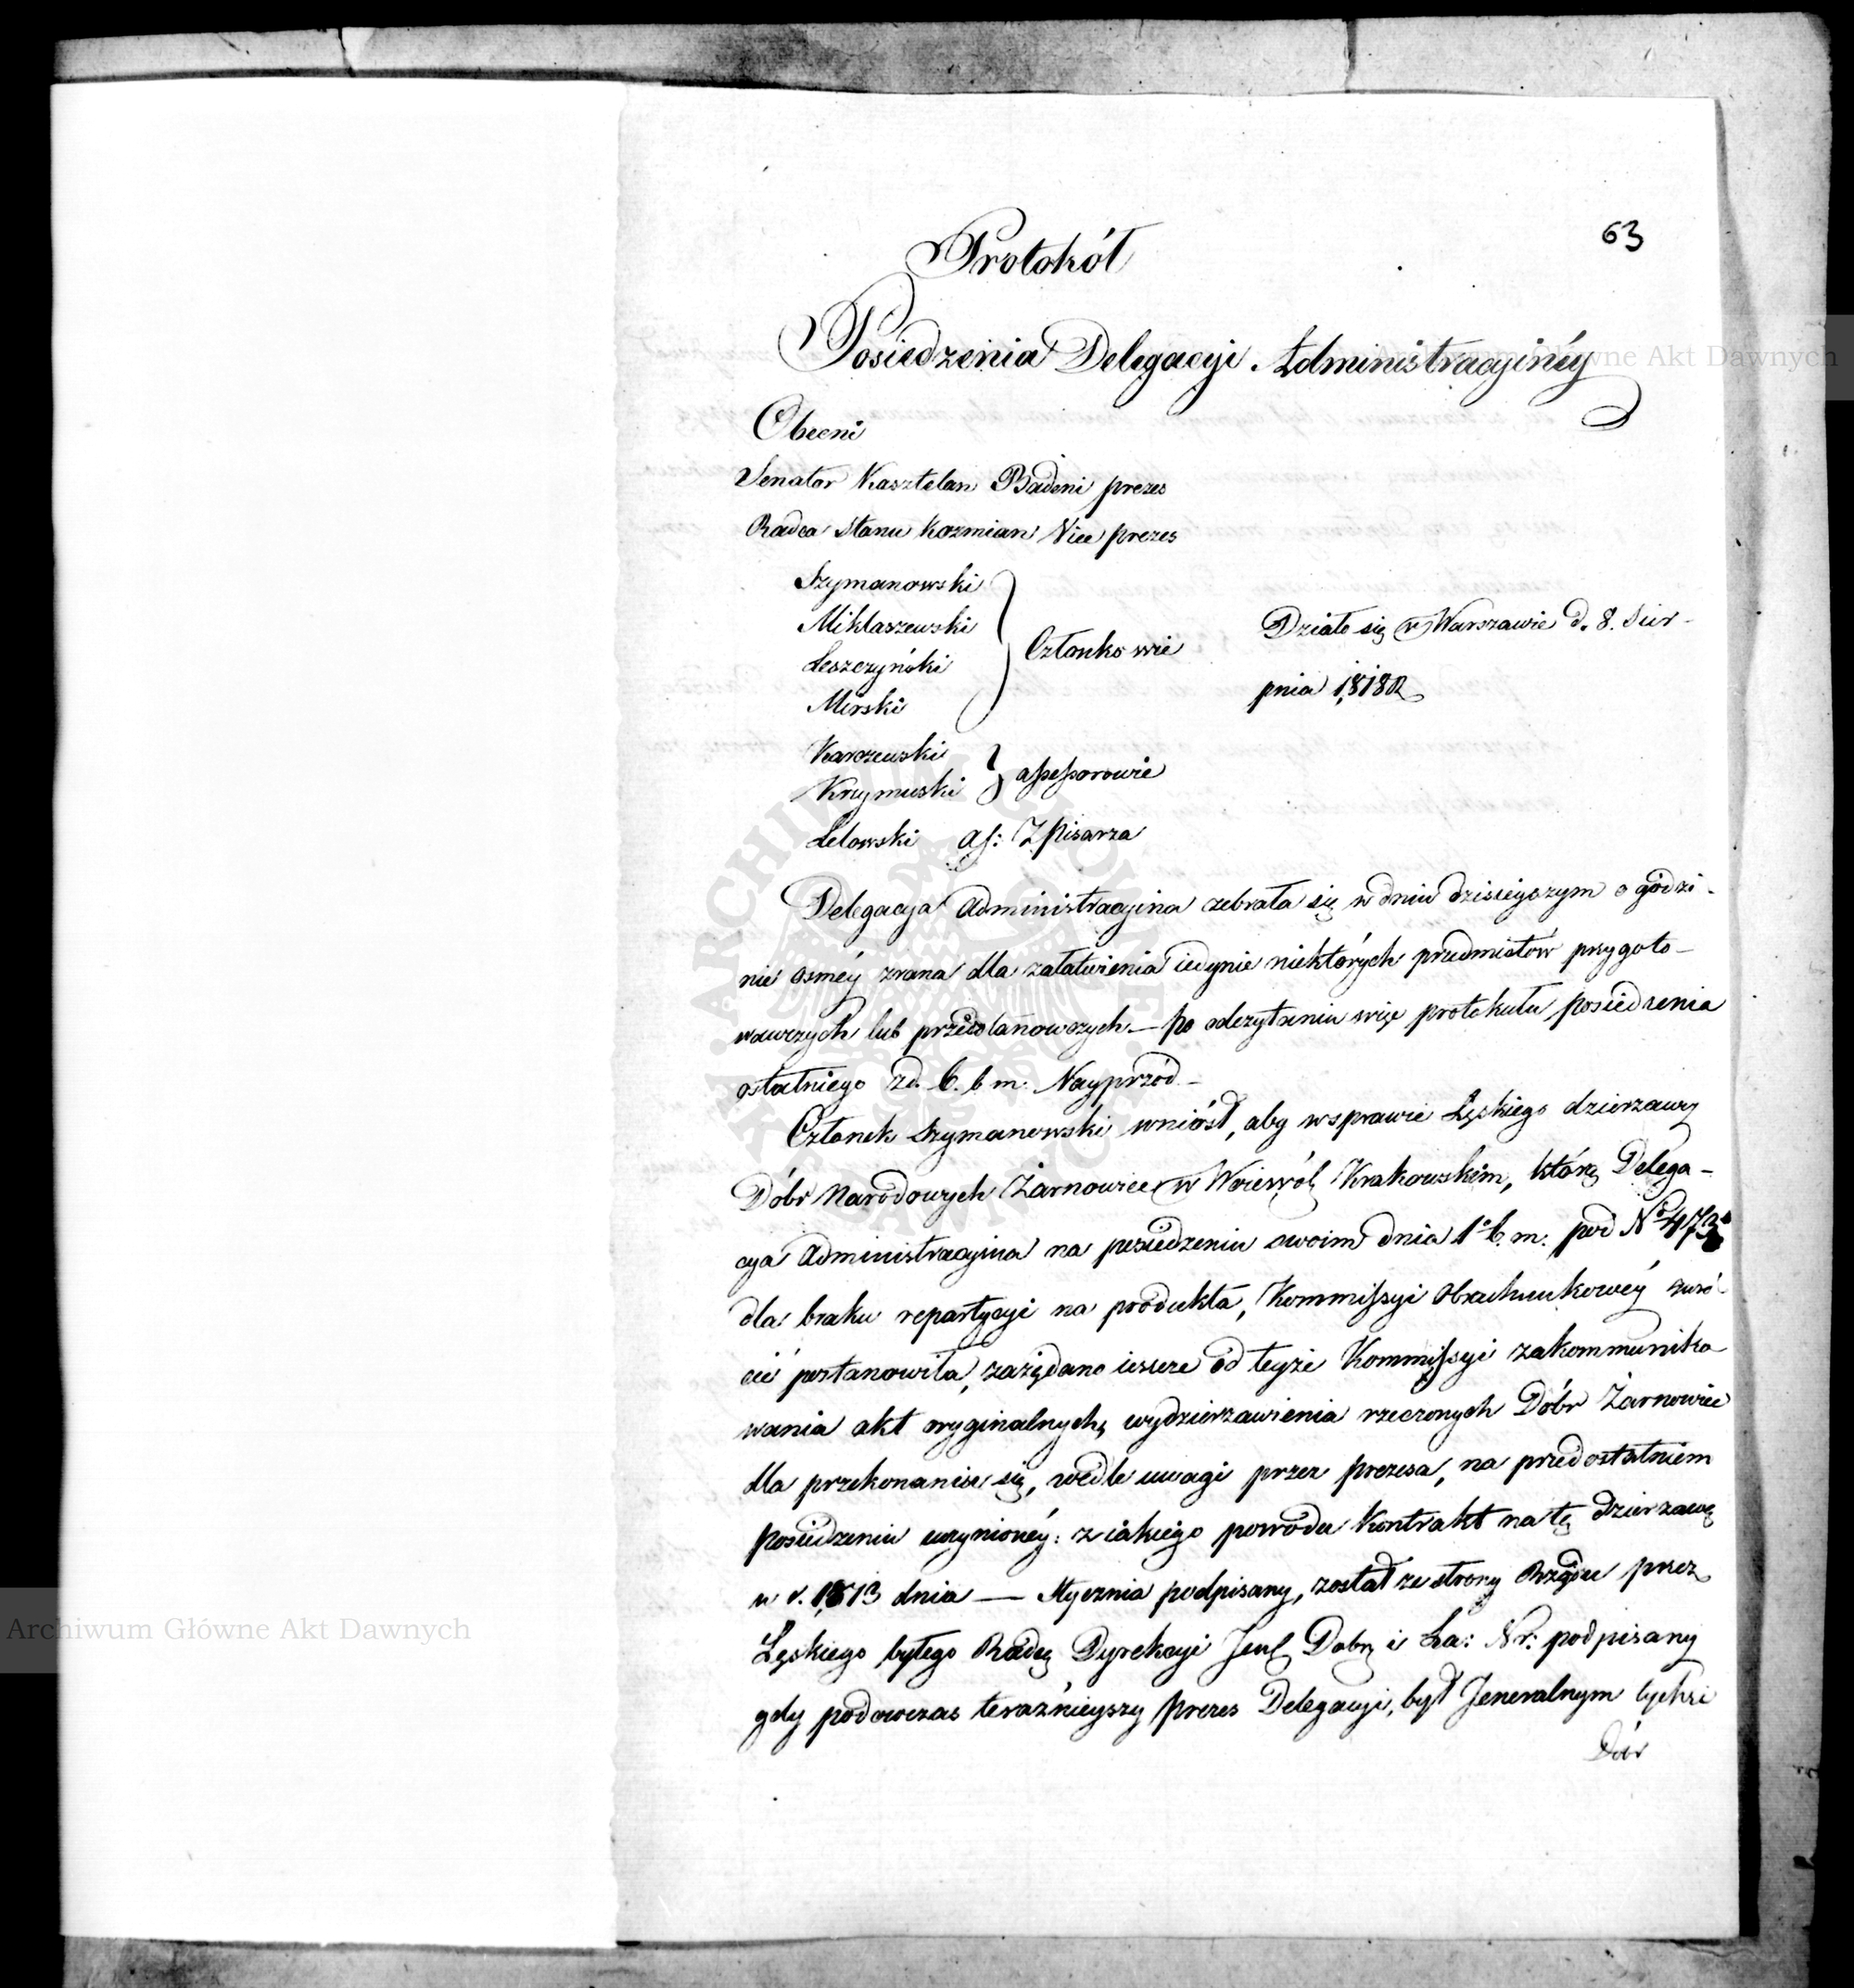 63
Protokół
Posiedzenia Delegacyi Administracyinéy
Obecni
Senator Kasztelan Badeni prezes
Radca Stanu Kozmian Vice prezes
Szymanowski
Miklaszewski
Leszczyński
Mirski
Członkowie
Działo się w Warszawie d. 8. Sier-
pnia 1818 R
Karczewski
Krzymuski
assessorowie
Lelowski as: Z Pisarza
Delegacya Administracyina zebrała się w dniu dzisieyszym o godzi-
nie osméy zrana dla załatwienia iedynie niektórych przedmiotów przygoto-
wawczych lub przedstanowczych — po odczytaniu więc protokułu posiedzenia
ostatniego z d. 6. b m. Nayprzód —
Członek Szymanowski wniósł, aby w sprawie Łęskiego dzierzawy
Dóbr Narodowych Żarnowiec w Woiewó Krakowskim, którą Delega-
cya Administracyina na posiedzeniu swoim dnia 1º b. m. pod Nº 473
dla braku repartycyi na produkta, Kommissyi Obrachunkowéy zwró-
cić postanowiła, zażądano ieszcze od teyże Kommissyi zakommuniko
wania akt oryginalnych, wydzierzawienia rzeczonych Dóbr Żarnowiec
dla przekonania się, wedle uwagi przez prezesa, na przedostatniem
posiedzeniu uczynionéy: z iakiego powodu Kontrakt na tę dzierzawę
w r. 1813 dnia — Stycznia podpisany, został ze strony Rządu przez
Łęskiego byłego Radcę Dyrekcyi Jenl Dobr i La: Nr: podpisany
gdy podówczas teraźnieyszy prezes Delegacyi, był Jeneralnym tychże
Dór
Archiwum Główne Akt Dawnych
Archiwum Główne Akt Dawnych